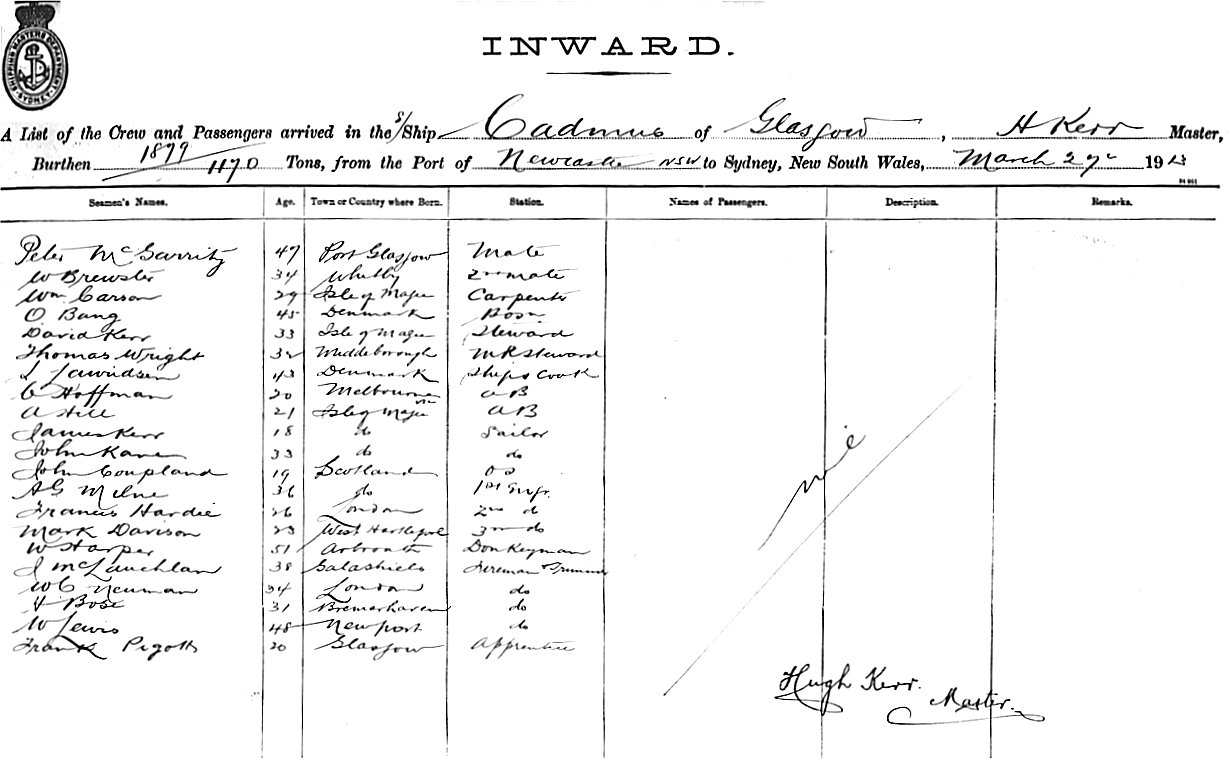 SHIPPING MASTERS DEPARTMENT SYDNEY
INWARD.
A List of the Crew and Passengers arrived in the S/Ship Cadmus of Glasgow, H Kerr Master,
Burthen 1879/1170 Tons, from the Port of Newcastle NSW to Sydney, New South Wales, March 29th 19
Seamen's Names. Age. Town or Country where Born. Station. Names of Passengers. Description. Remarks.
Peter McGarrity 47 Port Glasgow Mate
W Brewster 34 Whitby 2nd mate
Wm Carson 29 Isle of Magee Carpenter
O Bang 45 Denmark Bosn
David Kerr 33 Isle of Magee Steward
Thomas Wright 32 Middleborough M R Steward
L Lauridsen 43 Denmark Ships Cook
C Hoffman 20 Melbourne AB
A Hill 21 Isle of Magee AB
James Kerr 18 do Sailor
John Kane 33 do do
John Coupland 19 Scotland OS
AG Milne 36 do 1st Engr.
Francis Hardie 26 London 2nd d
Mark Davison 23 West Hartlepool 3rd do
W Harper 51 Arbroath Donkeyman
J McLauchlan 38 Galashiels Fireman & Trimmer
WC Neuman 34 London do
H Bose 31 Bremerhaven do
W Lewis 48 Newport do
Frank Pigott 20 Glasgow Apprentice
nil
Hugh Kerr. Master.